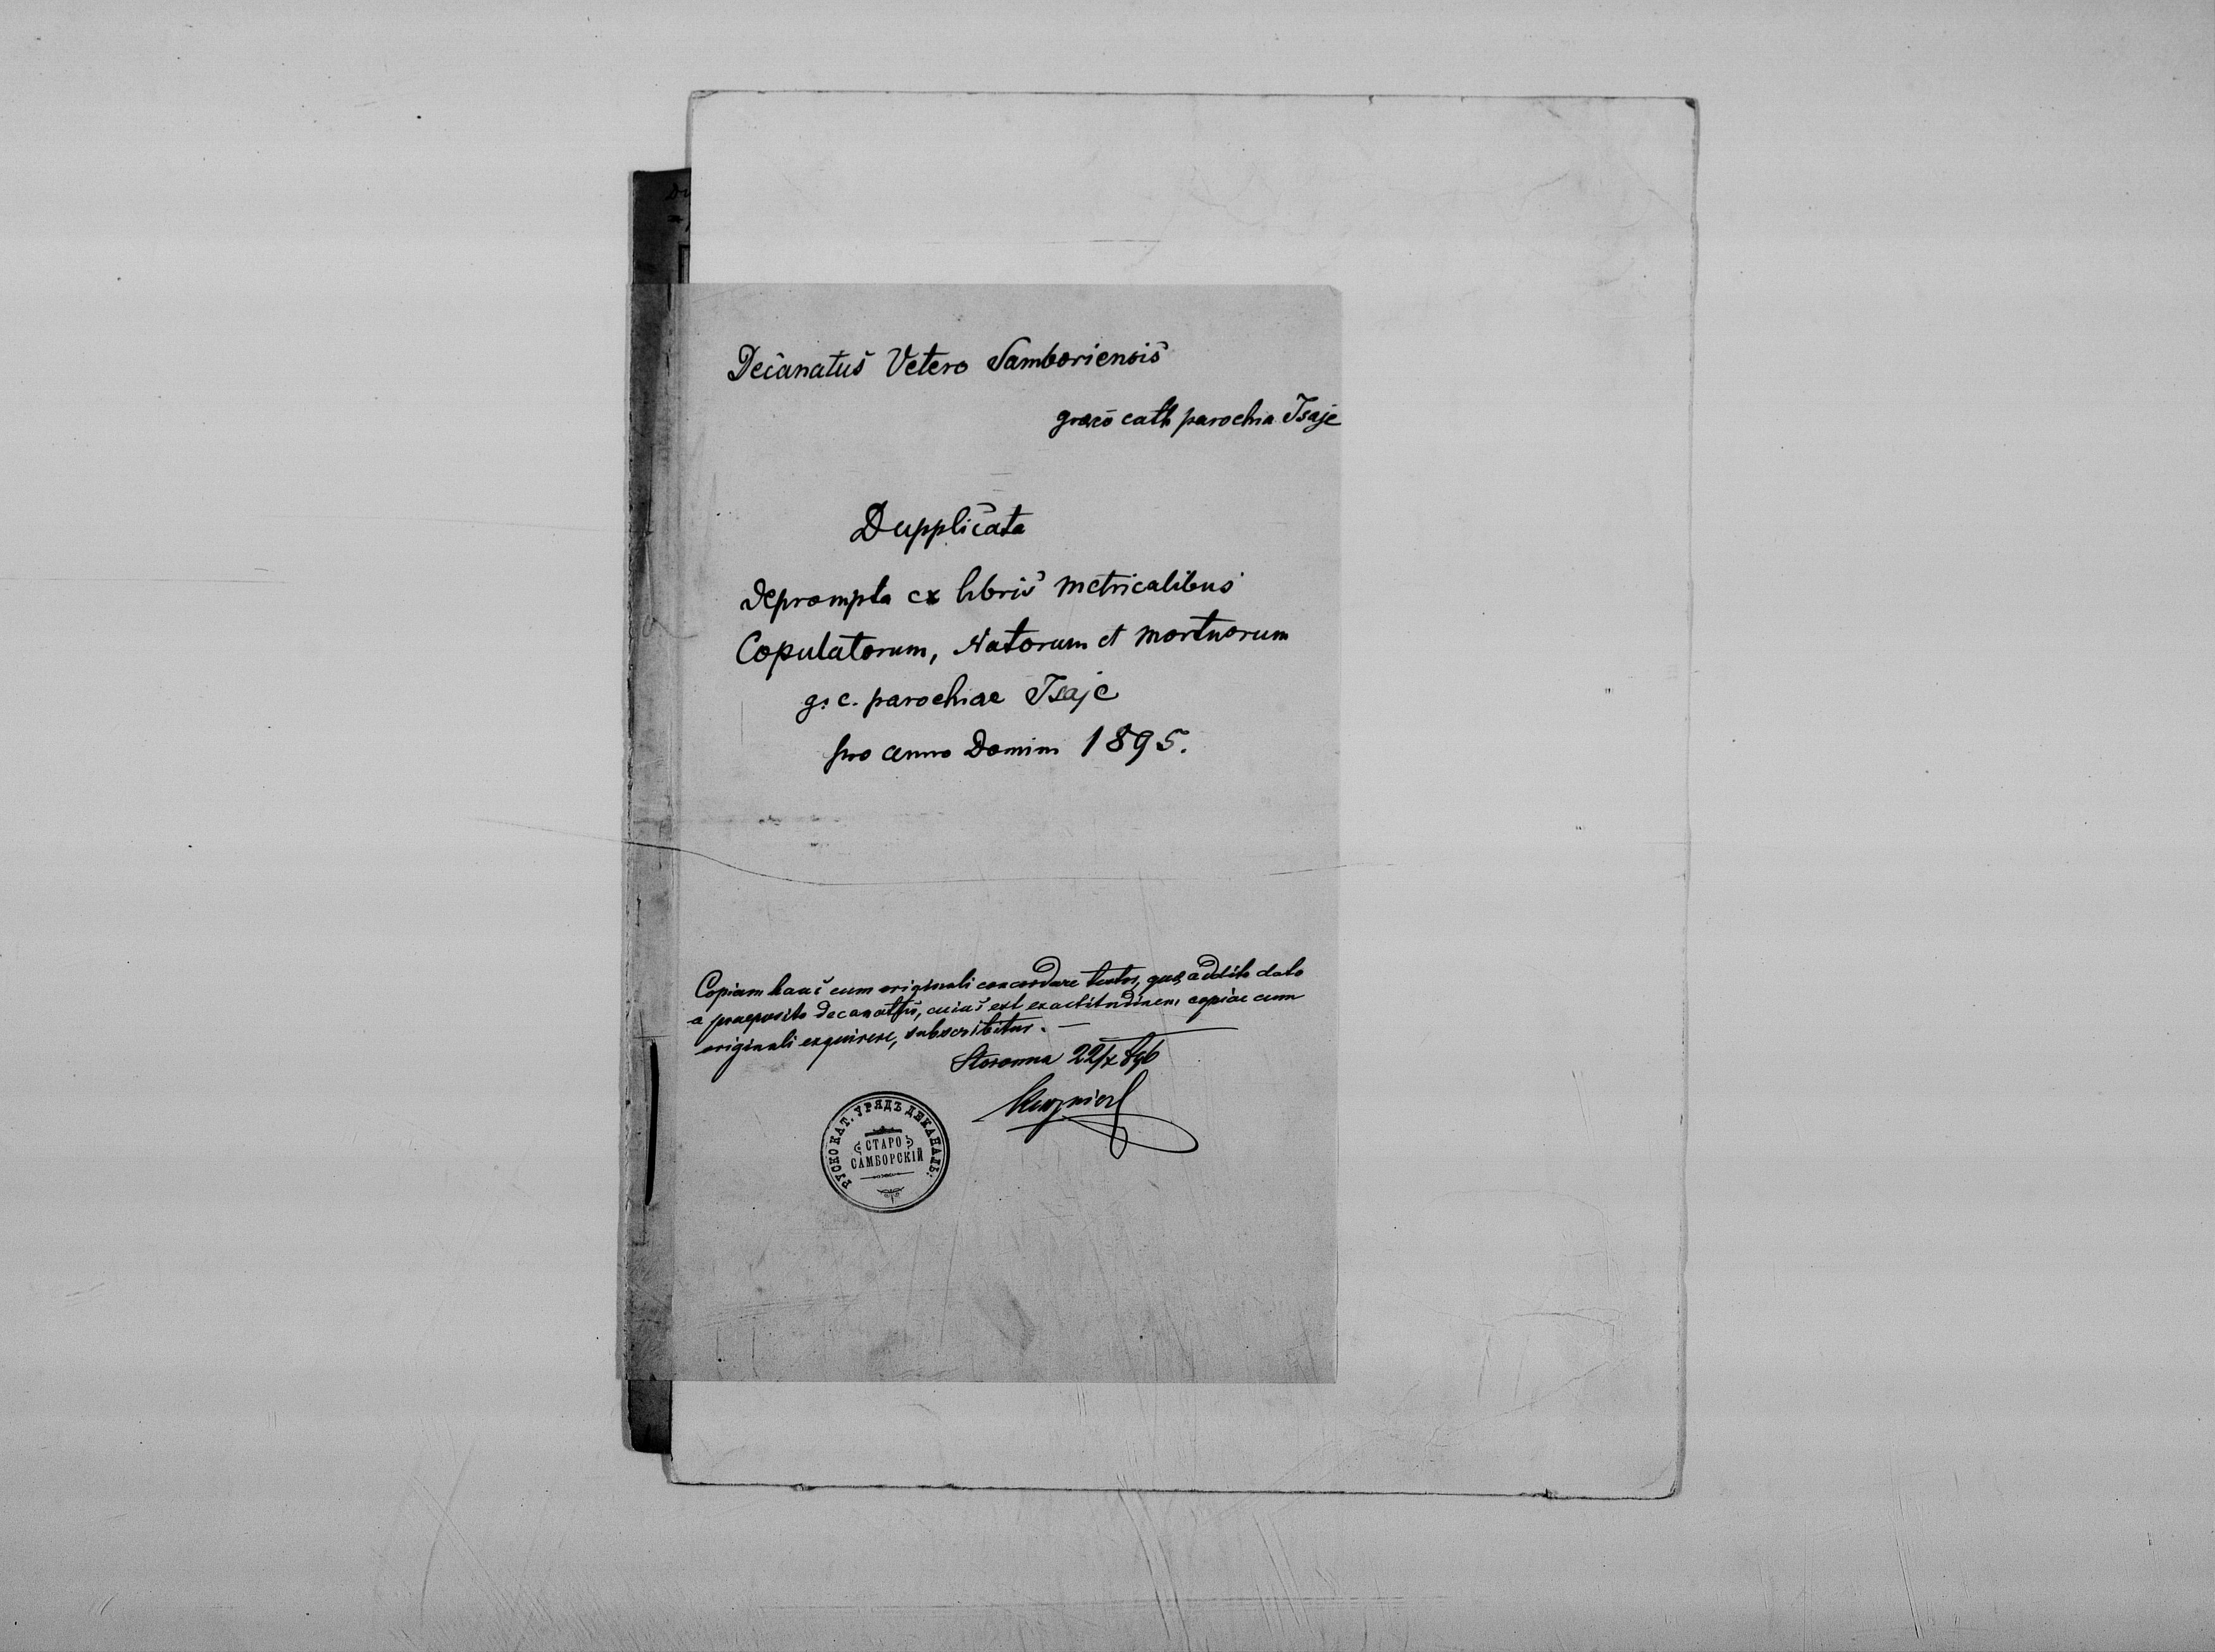 Decanatus Vetero Samboriensis
graeco cath parochia Isaje
Dupplicata
deprompta ex libris metricalibus
Copulatorum, Natorum et mortuorum
g. c. parochiae Isaje
pro anno Domini 1895.
Copiam hanc cum originali concordare testor, quo, addito dato
a praeposito decanatus, cuius est exactitudinem copiae cum
originali exquirere, subscribitur. —
Stronna 22/x 896
РУСКО КАТ. УРЯДЪ ДЕКАНАЛЬ:
СТАРО
САМБОРСКІЙ